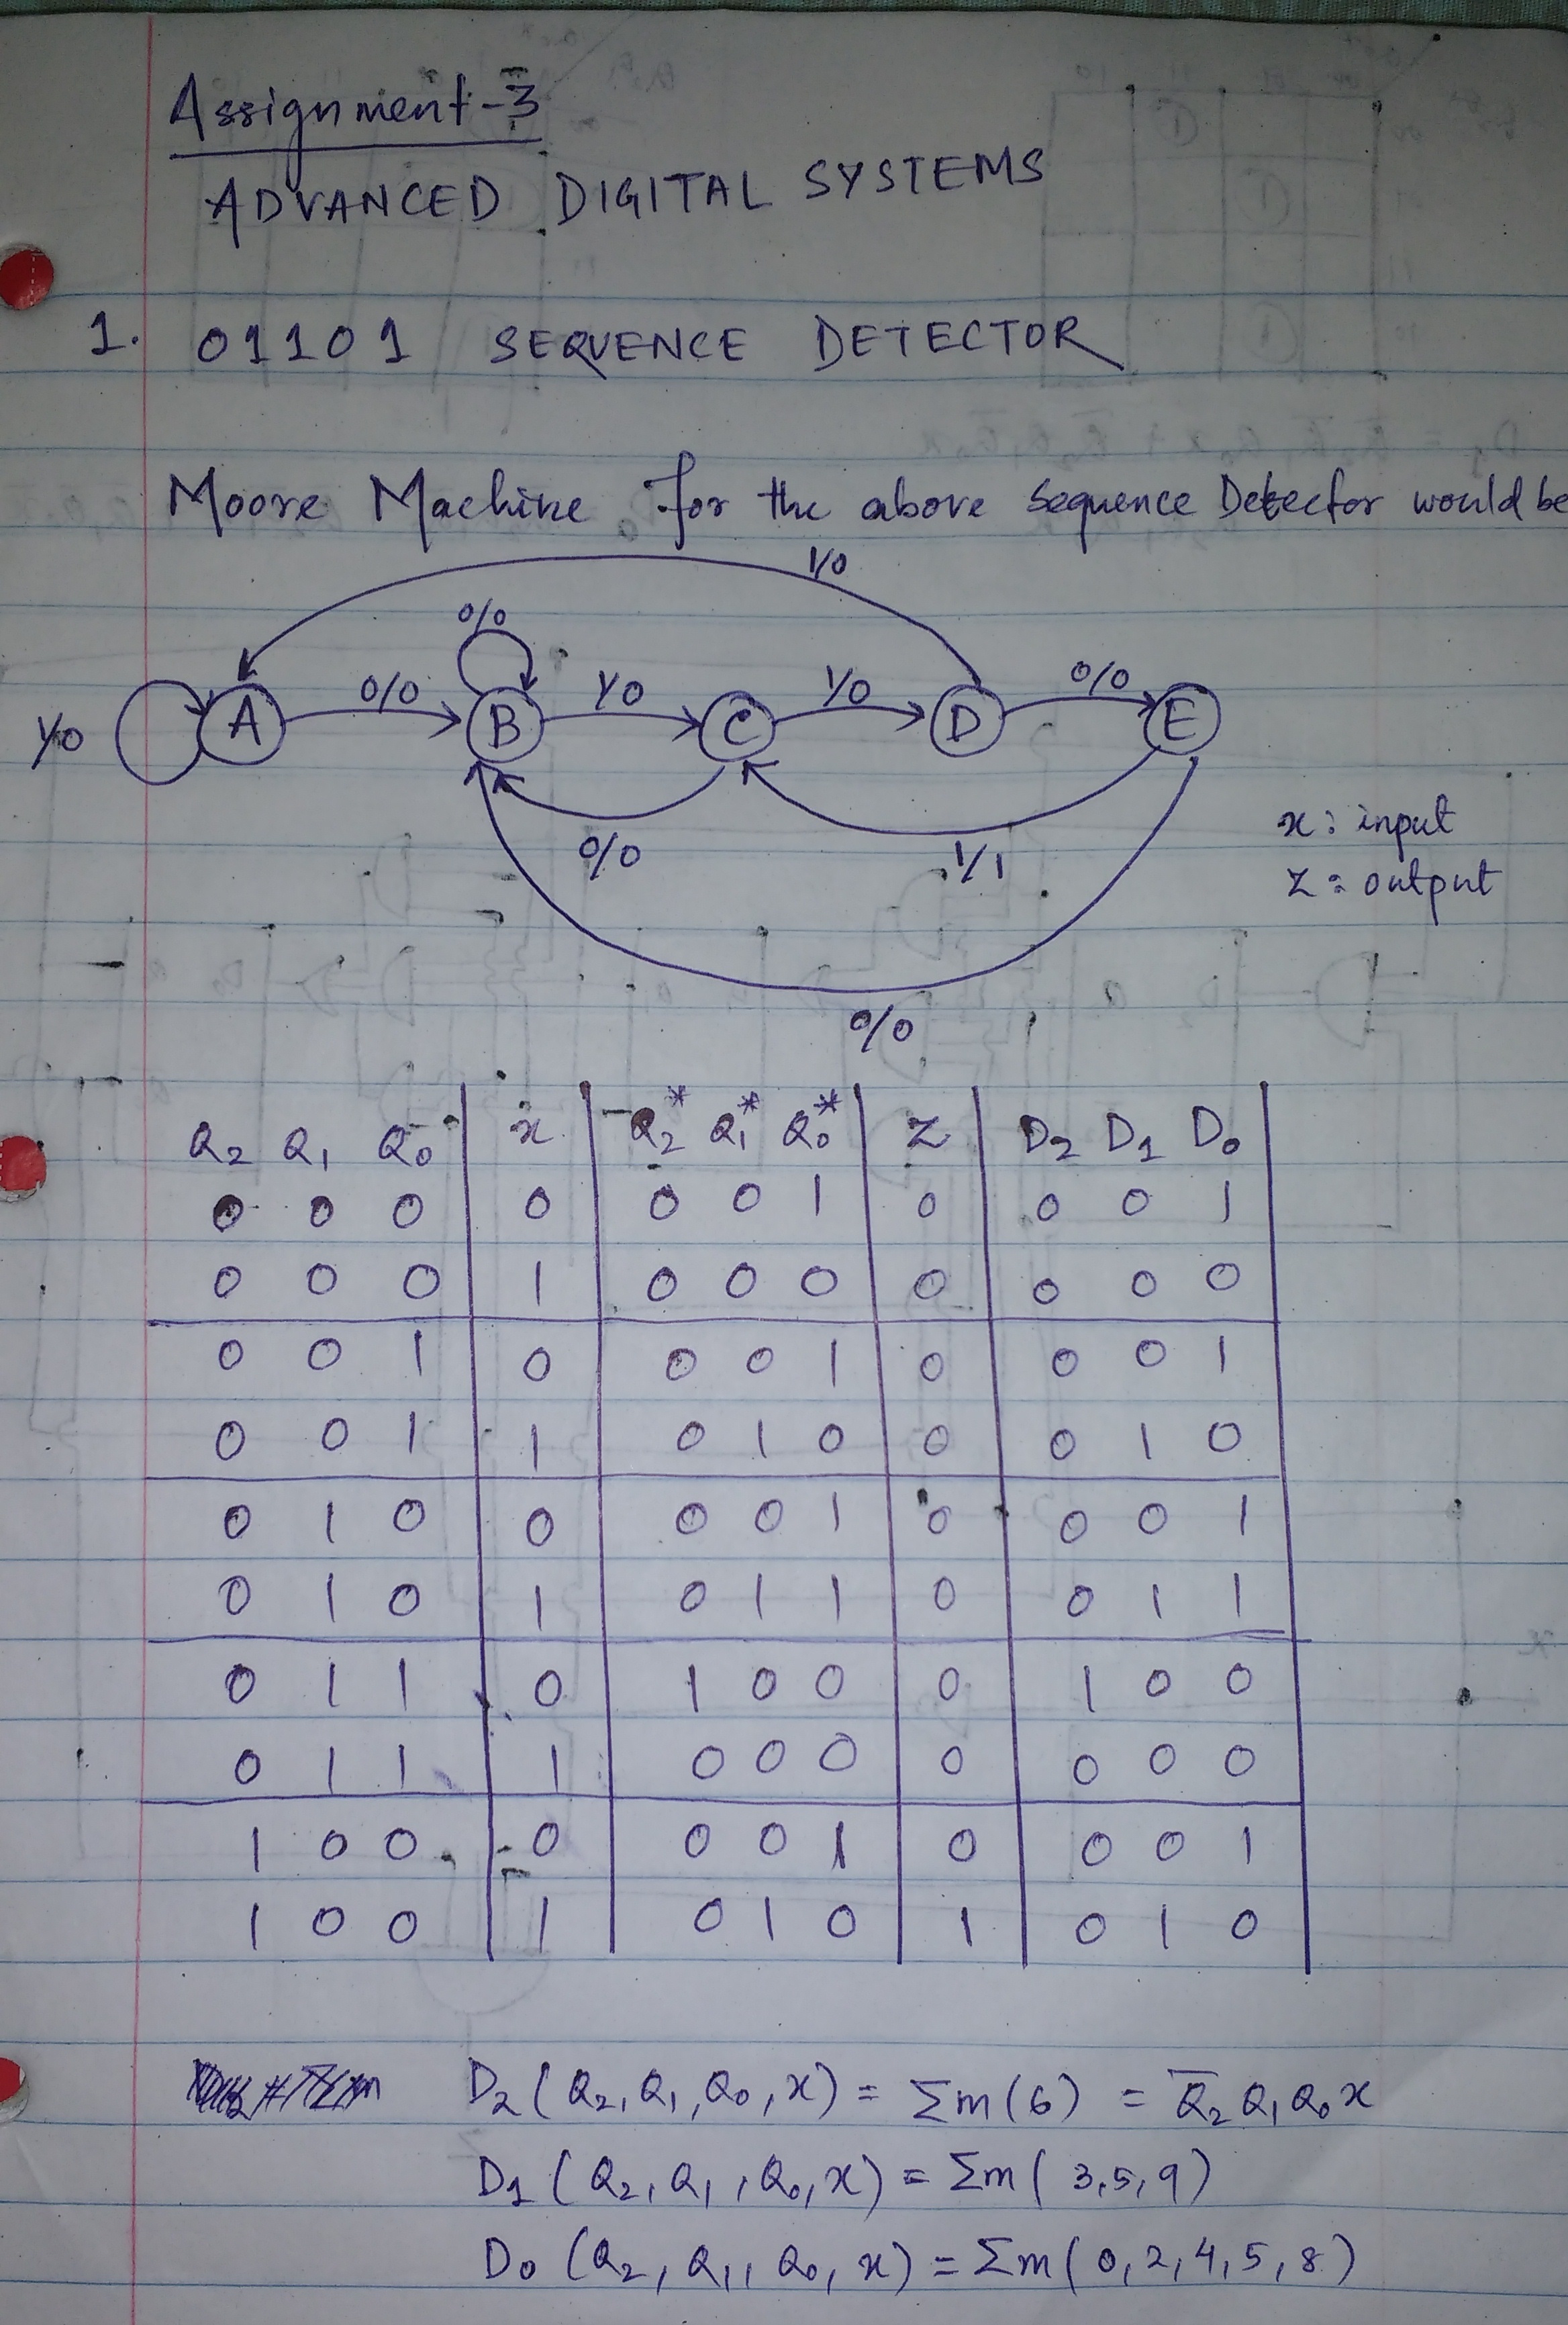 Assignment-3
ADVANCED DIGITAL SYSTEMS
1. 01101 SEQUENCE DETECTOR
Moore Machine for the above Sequence Detector would be
1/0
0/0
1/0 A 0/0 B 1/0 C 1/0 D 0/0 E
0/0 1/1
x: input
z: output
0/0
Q2 Q1 Q0 x Q2* Q1* Q0* z D2 D1 D0
0 0 0 0 0 0 1 0 0 0 1
0 0 0 1 0 0 0 0 0 0 0
0 0 1 0 0 0 1 0 0 0 1
0 0 1 1 0 1 0 0 0 1 0
0 1 0 0 0 0 1 0 0 0 1
0 1 0 1 0 1 1 0 0 1 1
0 1 1 0 1 0 0 0 1 0 0
0 1 1 1 0 0 0 0 0 0 0
1 0 0 0 0 0 1 0 0 0 1
1 0 0 1 0 1 0 1 0 1 0
D2 (Q2, Q1, Q0, x) = Σm(6) = Q̅2 Q1 Q0 x
D1 (Q2, Q1, Q0, x) = Σm( 3,5,9)
D0 (Q2, Q1, Q0, x) = Σm( 0,2,4,5,8)